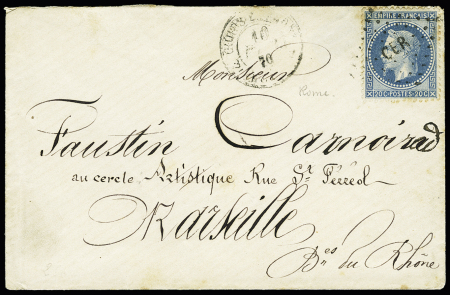 EMPIRE FRANCAIS
CER
20C POSTES 20C
10
70
Monsieur
Rome.
Faustin Carnoirad
au cercle Artistique Rue St. Férréol_
Marseille
Bes du Rhône